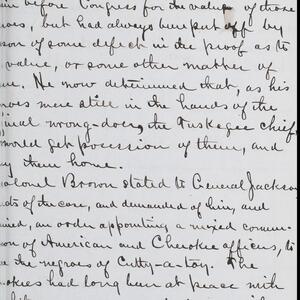 before Congress for the value of those
but had always been put off by
son of some defect in the proof as to
value, or some other matter of
He now determined that, as his
were still in the hands of the
wrong-doer, the Tuskegee chief
would get possession of them, and
them home.
Colonel Brown stated to General Jackson
of the case, and demanded of him, and
an order appointing a mixed
of American and Cherokee officers, to
the negroes of Cutty-a-toy. The
had long been at peace with